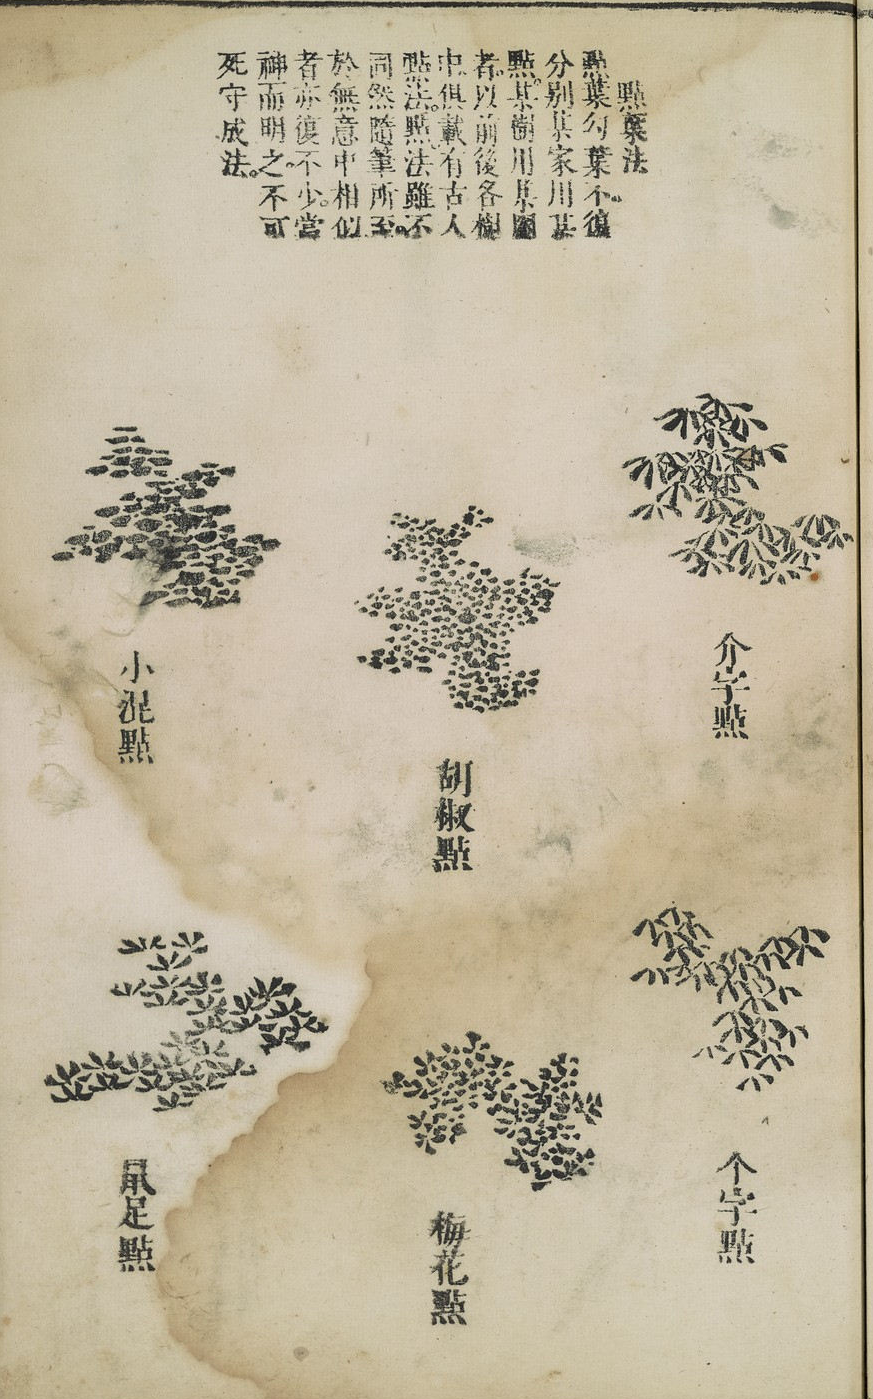 點葉法
點葉勾葉不復
分别某家用某
點某樹用某圈
者以前後各樹
中俱載有古人
點法點法雖不
同然隨筆所至
於無意中相似
者亦復不少當
神而明之不可
死守成法
介字點
胡椒點
小混點
个字點
梅花點
鼠足點